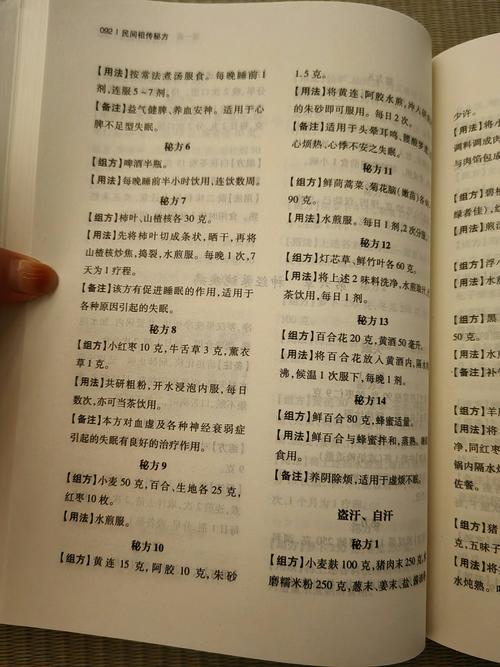 092 | 民间祖传秘方
【用法】按常法煮汤服食。每晚睡前 1
剂,连服 5~7 剂。
【备注】益气健脾、养血安神。适用于心
脾不足型失眠。
秘方 6
【组方】啤酒半瓶。
【用法】每晚睡前半小时饮用,连饮数周。
秘方 7
【组方】柿叶、山楂核各 30 克。
【用法】先将柿叶切成条状,晒干,再将
山楂核炒焦,捣裂,水煎服。每晚 1 次,7
天为 1 疗程。
【备注】该方有促进睡眠的作用,适用于
各种原因引起的失眠。
秘方 8
【组方】小红枣 10 克,牛舌草 3 克,薰衣
草 1 克。
【用法】共研粗粉,开水浸泡内服,每日
数次,亦可当茶饮用。
【备注】本方对血虚及各种神经衰弱症
引起的失眠有良好的治疗作用。
秘方 9
【组方】小麦 50 克,百合、生地各 25 克,
红枣 10 枚。
【用法】水煎服。
秘方 10
【组方】黄连 15 克,阿胶 10 克,朱砂
1.5 克。
【用法】将黄连、阿胶水煎,冲入研
的朱砂即可服用。每日 2 次。
【备注】适用于头晕耳鸣、腰酸梦遗、
心烦热、心悸不安之失眠。
秘方 11
【组方】鲜茼蒿菜、菊花脑(嫩苗)各
90 克。
【用法】水煎服。每日 1 剂,2 次分服。
秘方 12
【组方】灯芯草、鲜竹叶各 60 克。
【用法】将上述 2 味料洗净,水煎取汁,
茶饮用,每日 1 剂。
秘方 13
【组方】百合花 20 克,黄酒 50 毫升。
【用法】将百合花放入黄酒内,隔水
沸,候温 1 次服下,每晚 1 剂。
秘方 14
【组方】鲜百合 80 克,蜂蜜适量。
【用法】鲜百合与蜂蜜拌和,蒸熟,睡前
食用。
【备注】养阴除烦,适用于虚烦不眠。
盗汗、自汗
秘方 1
【组方】小麦麸 100 克,猪肉末 250 克,
磨糯米粉 250 克,葱末、姜末、盐、
少许。
【用法】将小
调料调成肉
与肉馅包成
【组方】碧桃
绿者佳),红
【用法】煎汤
【组方】浮小
【用法】将
【组方】黑
50 克。
【用法】将
【备注】补气
【组方】羊
【用法】将
净,同红枣
锅内隔水炖
佐餐。
【组方】猪
克,五味子
【用法】将
水炖熟。